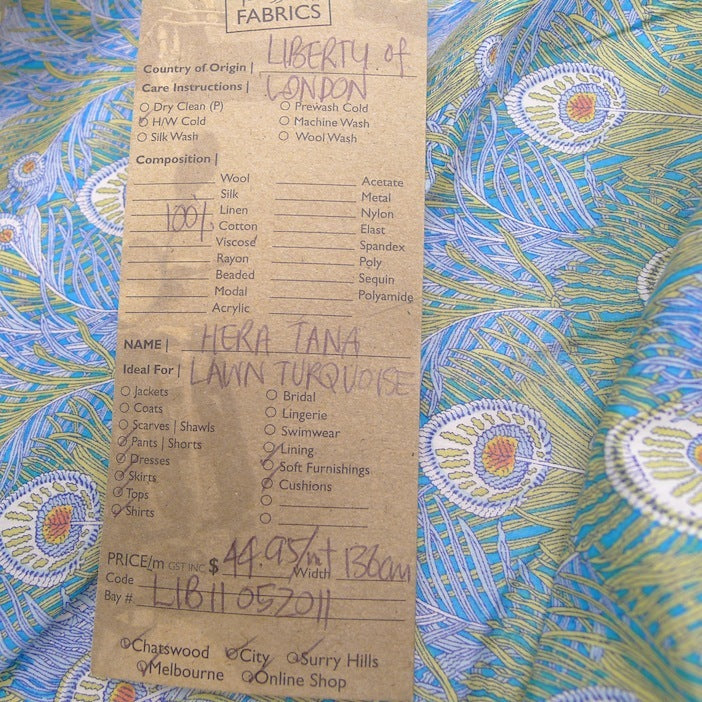 FABRICS
Country of Origin | LIBERTY of
Care Instructions | LONDON
Dry Clean (P) Prewash Cold
H/W Cold Machine Wash
Silk Wash Wool Wash
Composition |
Wool Acetate
Silk Metal
Linen Nylon
100% Cotton Elast
Viscose Spandex
Rayon Poly
Beaded Sequin
Modal Polyamide
Acrylic
NAME | HERA TANA
Ideal For | LAWN TURQUOISE
Jackets Bridal
Coats Lingerie
Scarves | Shawls Swimwear
Pants | Shorts Lining
Dresses Soft Furnishings
Skirts Cushions
Tops
Shirts
PRICE/m GST INC $ 44.95/mt Width 136cm
Code LIB11052011
Bay #
Chatswood City Surry Hills
Melbourne Online Shop